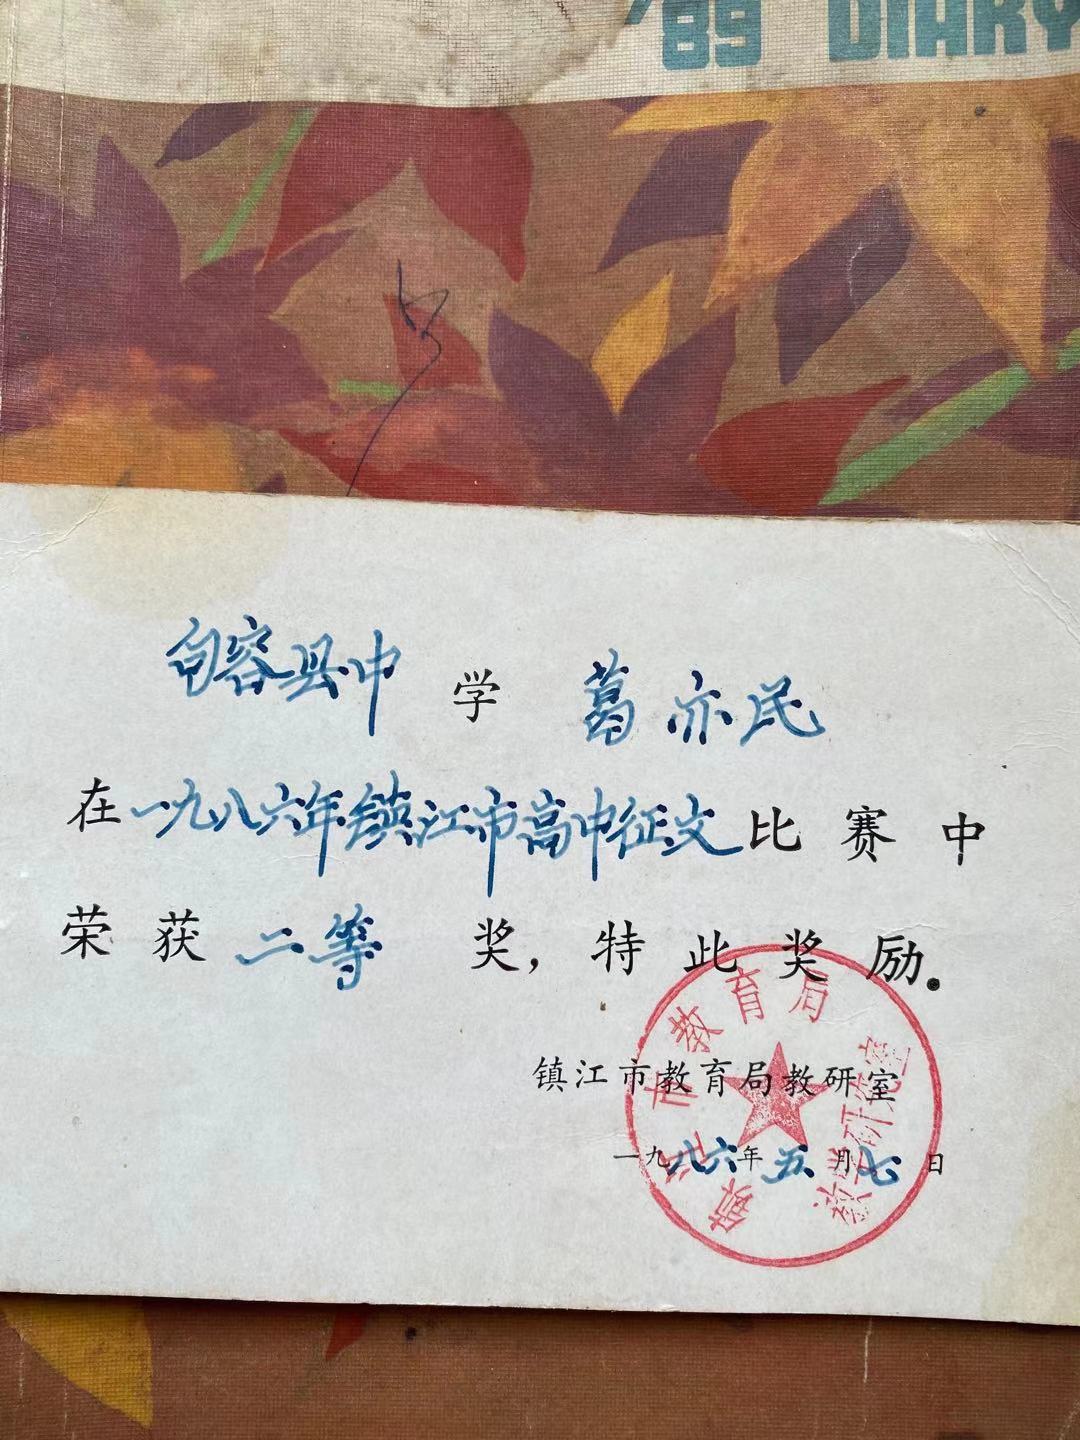 '89 DIARY
句容县中学 葛亦民
在一九八六年镇江市高中征文比赛中
荣获二等奖，特此奖励.
镇江市教育局教研室
一九八六年五月七日
镇江市教育局
教学研究室